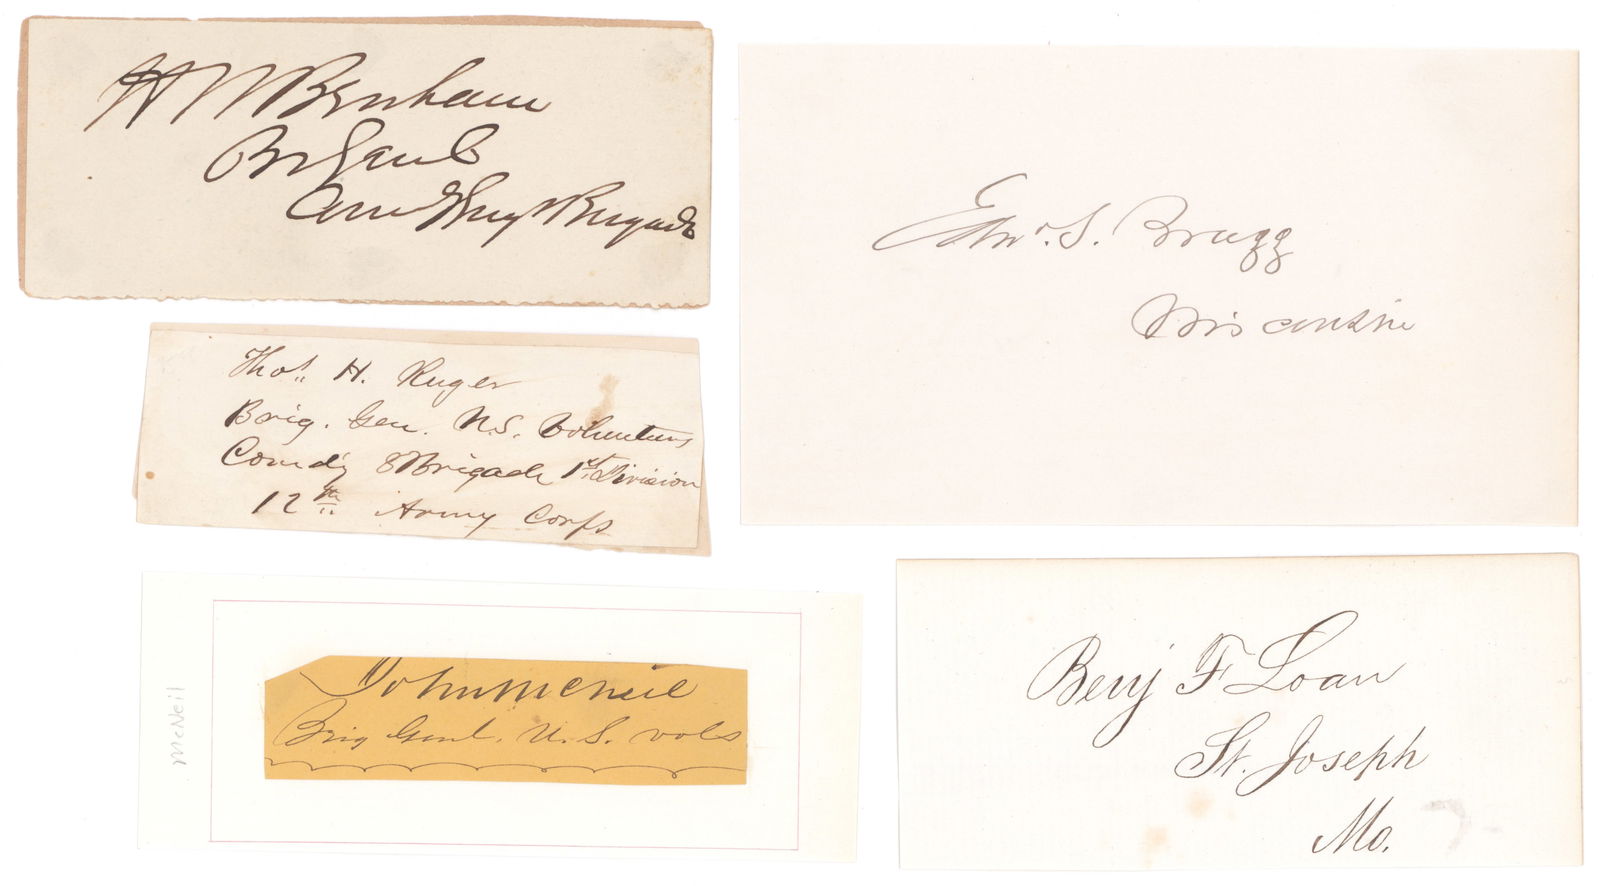 H W Benham
Br Genl
Comg Engr Brigade
Thos. H. Ruger
Brig. Gen. U.S. Volunteers
Comdg 3 Brigade 1st Division
12th Army Corps
John McNeil
Brig Genl. U.S. vols
McNeil
Edw. S. Bragg
Wisconsin
Benj F Loan
St. Joseph
Mo.